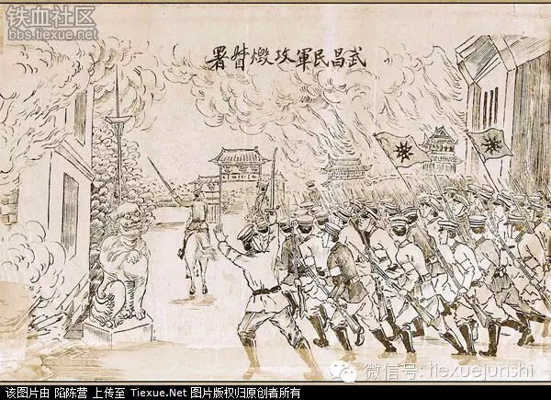 铁血社区
bbs.tiexue.net
武昌民軍攻燬督署
微信号: tiexuejunshi
该图片由 陷陈营 上传至 Tiexue.Net 图片版权归原创者所有